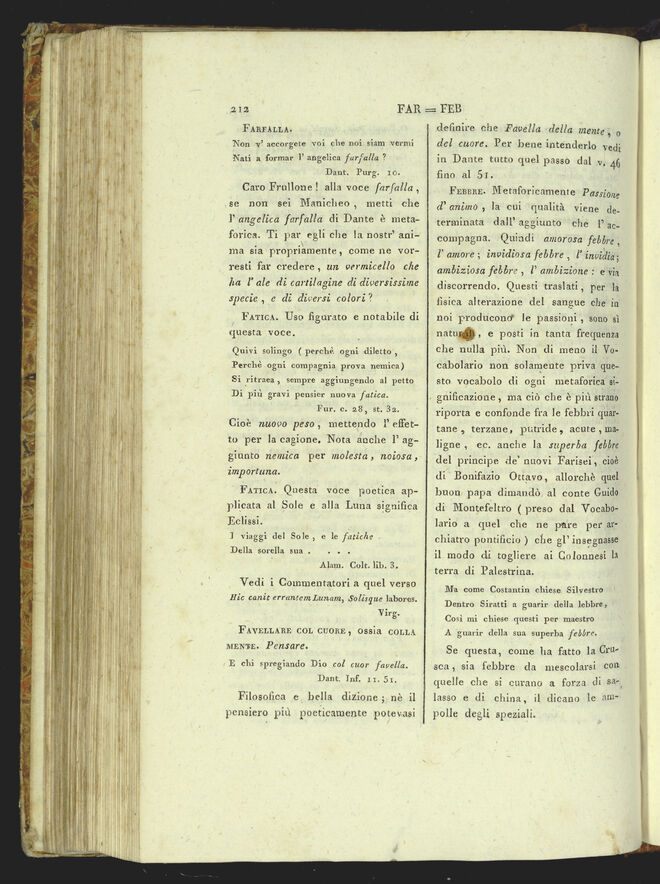 212
FAR = FEB
FARFALLA.
Non v' accorgete voi che noi siam vermi
Nati a formar l' angelica farfalla ?
Dant. Purg. 10.
Caro Frullone ! alla voce farfalla ,
se non sei Manicheo , metti che
l' angelica farfalla di Dante è meta-
forica. Ti par egli che la nostr' ani-
ma sia propriamente, come ne vor-
resti far credere , un vermicello che
ha l' ale di cartilagine di diversissime
specie , e di diversi colori ?
FATICA. Uso figurato e notabile di
questa voce.
Quivi solingo ( perchè ogni diletto ,
Perchè ogni compagnia prova nemica)
Si ritraea , sempre aggiungendo al petto
Di più gravi pensier nuova fatica.
Fur. c. 28 , st. 32.
Cioè nuovo peso , mettendo l' effet-
to per la cagione. Nota anche l' ag-
giunto nemica per molesta, noiosa,
importuna.
FATICA. Questa voce poetica ap-
plicata al Sole e alla Luna significa
Eclissi.
I viaggi del Sole , e le fatiche
Della sorella sua . . . .
Alam. Colt. lib. 3.
Vedi i Commentatori a quel verso
Hic canit errantem Lunam, Solisque labores.
Virg.
FAVELLARE COL CUORE, OSSIA COLLA
MENTE. Pensare.
E chi spregiando Dio col cuor favella.
Dant. Inf. 11. 51.
Filosofica e bella dizione ; nè il
pensiero più poeticamente potevasi
definire che Favella della mente , o
del cuore. Per bene intenderlo vedi
in Dante tutto quel passo dal v. 46
fino al 51.
FEBBRE. Metaforicamente Passione
d' animo , la cui qualità viene de-
terminata dall' aggiunto che l' ac-
compagna. Quindi amorosa febbre ,
l' amore ; invidiosa febbre , l' invidia ;
ambiziosa febbre , l' ambizione : e via
discorrendo. Questi traslati , per la
fisica alterazione del sangue che in
noi producono le passioni , sono sì
naturali , e posti in tanta frequenza
che nulla più. Non di meno il Vo-
cabolario non solamente priva que-
sto vocabolo di ogni metaforica si-
gnificazione , ma ciò che è più strano
riporta e confonde fra le febbri quar-
tane , terzane, putride, acute , ma-
ligne , ec. anche la superba febbre
del principe de' nuovi Farisei, cioè
di Bonifazio Ottavo, allorchè quel
buon papa dimandò al conte Guido
di Montefeltro ( preso dal Vocabo-
lario a quel che ne pare per ar-
chiatro pontificio ) che gl' insegnasse
il modo di togliere ai Colonnesi la
terra di Palestrina.
Ma come Costantin chiese Silvestro
Dentro Siratti a guarir della lebbre,
Così mi chiese questi per maestro
A guarir della sua superba febbre.
Se questa, come ha fatto la Cru-
sca , sia febbre da mescolarsi con
quelle che si curano a forza di sa-
lasso e di china, il dicano le am-
polle degli speziali.